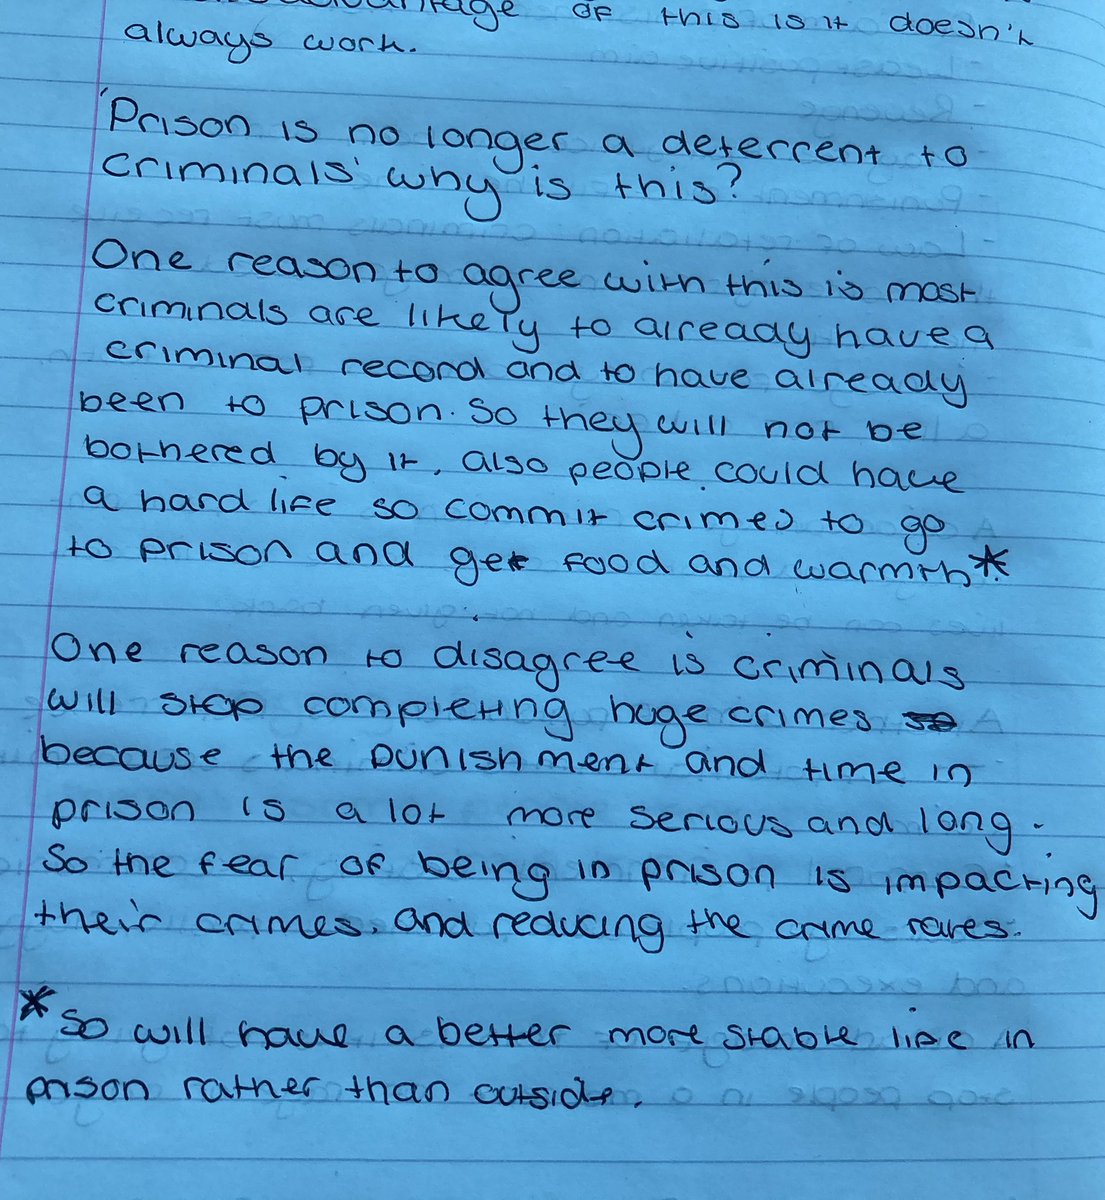 of this is it doesn't
always work.
'Prison is no longer a deterrent to
criminals' why is this?
One reason to agree with this is most
criminals are likely to already have a
criminal record and to have already
been to prison. So they will not be
bothered by it, also people could have
a hard life so commit crimes to go
to prison and get food and warmth*
One reason to disagree is criminals
will stop completing huge crimes
because the punishment and time in
prison is a lot more serious and long.
So the fear of being in prison is impacting
their crimes, and reducing the crime rates.
*So will have a better more stable life in
prison rather than outside.